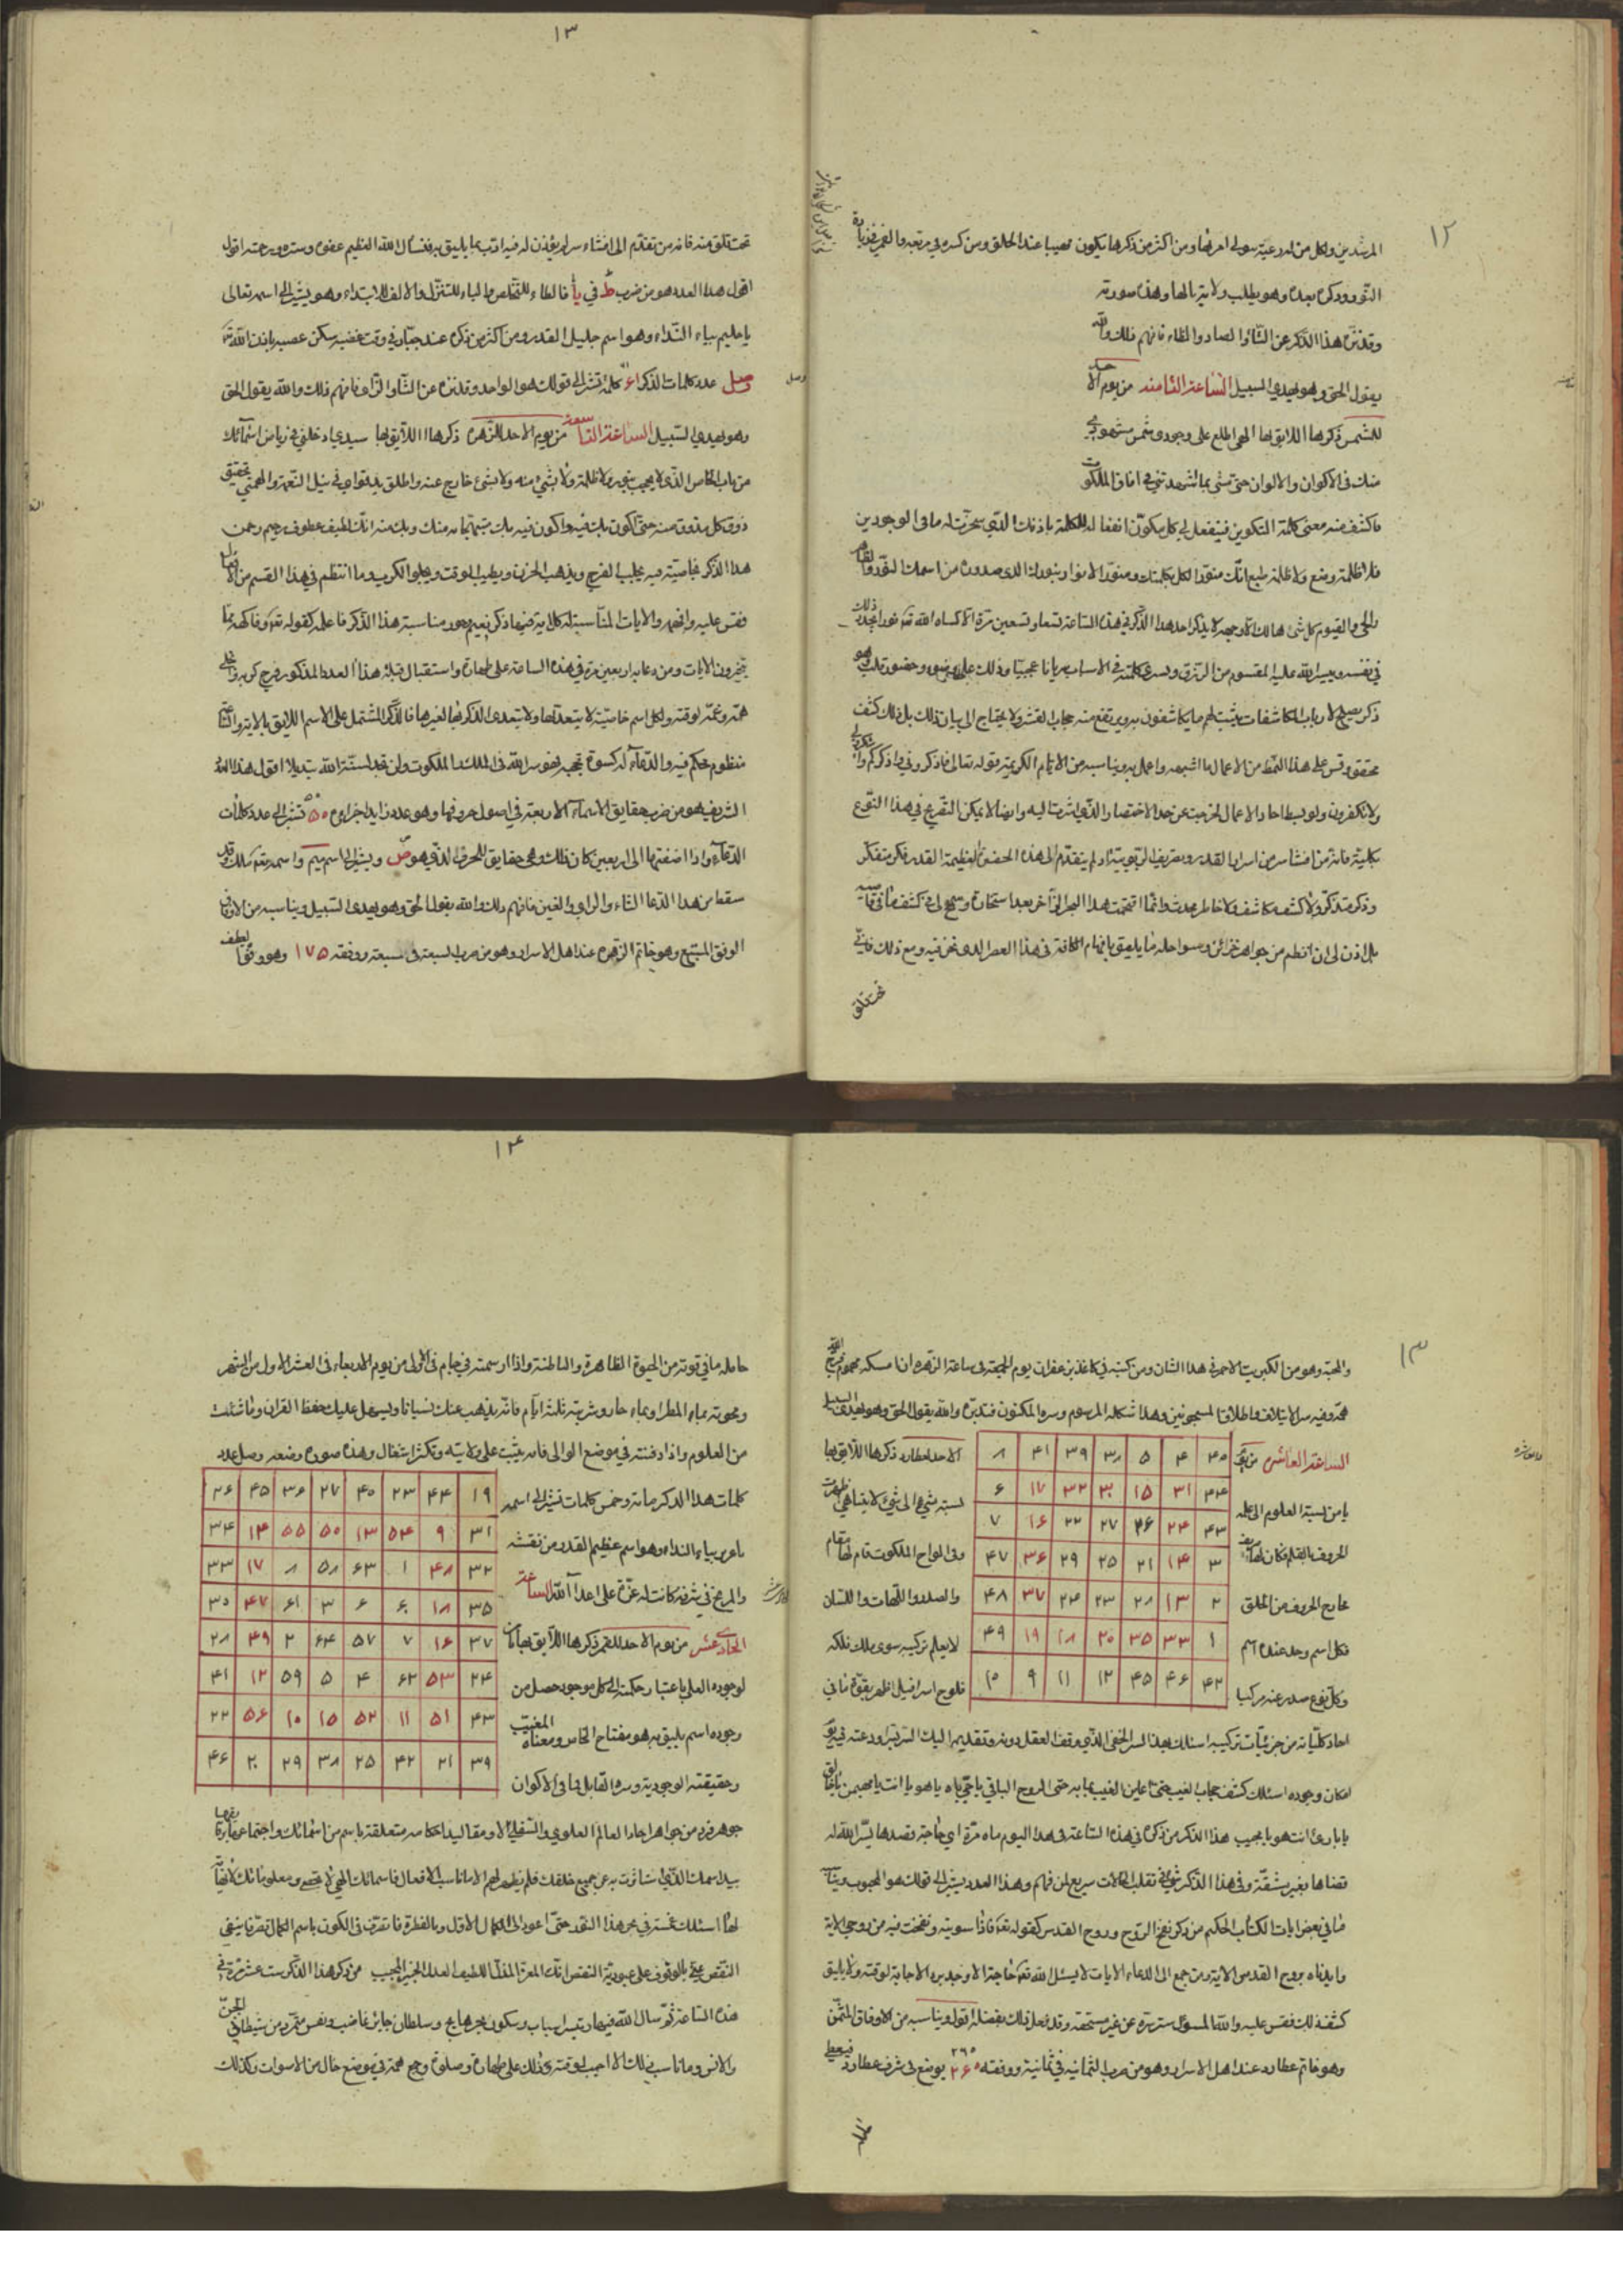 ١٢
المرشدين ولكل من له رعية سولي امرها ومن اكثر من ذكرها يكون مهيبا عند الخلق ومن كسره في مربعه والقمر في زيادة
النور وذكره بعده وهو يطلب ولاية نالها وهذه صورته
وقد تنزه هذا الذكر عن الثاء والصاد والظاء فافهم ذلك والله
يقول الحق وهو يهدي السبيل الساعة الثامنه من يوم الاحد
للشمس ذكرها اللايق بها الهي اطلع على وجودي شمس شهودي
منك في الاكوان والالوان حتى تمشي بما اشهدتني في افاق الملكوت
فاكشف منه معنى كلمة التكوين فينفعل لي كل مكون انفعاله للكلمة باذنك الذي سخرت له ما في الوجودين
فلا ظلمة وضع ولا ظلمة طبع انك منور الكل بكلمتك ومنور الانوار بنورك الذي صدوره من اسمك النور والظاهر
والحي والقيوم كل شئ هالك الا وجهه لا يذكر احد هذا الذكر في هذه الساعة تسعا وتسعين مرة الا كساه الله تعه نورا يجد ذلك
في نفسه وييسر الله عليه المقسوم من الرزق ويسري كلمته في الاسباب سريانا عجيبا وذلك على وضوء وحضور قلب وهو
ذكر يصلح لارباب المكاشفات يثبت لهم ما يكاشفون به ويرتفع منه حجاب القشر ولا يحتاج الى بيان ذلك بل ذلك كشف
محقق وقس على هذا النمط من الاعمال ما اشبهه واعمل به ويناسبه من الايام الكريمة قوله تعالى فاذكروني اذكركم واشكروا لي
ولا تكفرون ولو بسط احاد الاعمال لخرجت عن حد الاختصار الذي اشرت اليه وايضا لا يمكن التصريح في هذا النوع
بكلية فانه من افشا سر من اسرار القدر وتصريف الربوبية اذ لم يتقدم الى هذه الحضرة العظيمة القدر فكر متفكر
وذكر متذكر ولا كشف مكاشف ولا خاطر محدث وانما اقتحمت هذا البحر الزاخر بعد استخارة وسنح لي في كشف منافعه
بل اذن لي ان انظم من جواهر خزائن وسواحله ما يليق بافهام الكافة في هذا العصر الذي نحن فيه ومع ذلك فاني
تحت قلق
١٣
تحت قلق منه فانه من تقدم الى افشاء سر لم يؤذن له فيه ادب بما يليق به فنسأل الله العظيم عفوه وستره ورحمته اقول
اقول هذا العدد هو من ضرب ط في يأ فالطاء للتخلص والياء للتنزل والالف للابتداء وهو يشير الى اسمه تعالى
يا حليم بياء النداء وهو اسم جليل القدر ومن اكثر من ذكره عند جبار في وقت غضبه سكن غضبه باذن الله تعه
وصل عدد كلمات الذكر كلمة تشير الى قولك هو الواحد وقد تنزه عن الثاء والزاي فافهم ذلك والله يقول الحق
وهو يهدي السبيل الساعة التاسعة من يوم الاحد للزهره ذكرها اللايق بها سيدي ادخلني في رياض اسمائك
من باب الخاص الذي لا يحجب بنور ولا ظلمة ولا بشئ منه ولا بشئ خارج عنه واطلق يد قواي في نيل النعمة والهمني تحقيق
ذوق كل مذوق منه حتى اكون بك فيه واكون فيه بك مبتهجا به منك وبك منه انك لطيف عطوف رحيم رحمن
هذا الذكر خاصيته فيه يجلب الفرح ويذهب الحزن ويطيب الوقت ويجلو الكرب وما انتظم في هذا القسم من الافعال
فقس عليه وافهم والايات المناسبة له كل اية فيها ذكر نعيم
يتخيرون الايات ومن دعا به اربعين مرة في هذه الساعة على طهارة واستقبال قبلة هذا العدد المذكور فرج كربه وانجلى
همه وغمه لوقته ولكل اسم خاصية لا يتعداها ولا يتعدى الذكر بها لغيرها فالذكر المشتمل على الاسم اللايق بالاية والدعاء
منظوم حكم فيه والدعاء له كسوة تجهه فهو سر الله في الملك والملكوت ولن تجد لسنة الله تبديلا اقول هذا العدد
الشريف هو من ضرب حقايق الاسماء الاربعة في اصول حروفها وهو عدد زايد اجزاوه ٥٠ تشير الى عدد كلمات
الدعاء واذا اضفتها الى اربعين كان ذلك وهي حقايق للحرف الذي هو ص ويشير الى اسم ميم واسمه تعه ملك وقد
سقط من هذا الدعا الثاء والزاي والغين فافهم ذلك والله يقول الحق وهو يهدي السبيل ويناسبه من الاوفاق
الوفق المسبع وهو خاتم الزهره عند اهل الاسرار وهو من ضرب السبعة في السبعة ووفقه ١٧٥ وهو وفق لطيف
١٣
والمحبة وهو من الكبريت الاحمر في هذا الشان ومن كتبه في كاغذ بزعفران يوم الجمعة في ساعة الزهره ان امسكه مهموم فرج الله
همه وفيه سر الايتلاف واطلاق المسجونين وهذا شكله المرسوم وسره المكنون فتدبره والله يقول الحق وهو يهدي السبيل
الساعة العاشره من يوم الاحد لعطارد ذكرها اللايق بها
يا من نسبة العلوم الى علمه لنسبة شئ الى شئ لا يتناهى ظهرت
الحروف بالقلم فكان لها تصريف وفي الواح الملكوت قام لها مقام
مخارج الحروف من الحلق والصدر واللهات واللسان
فكل اسم وجد عنده اسم لا يعلم تركيبه سوى ملك فلكه
وكل نوع صدر عنه مركبا فلوح اسرافيل اظهر بقوة ما في
٤٠ ٤ ٥ ٣٨ ٣٩ ٤١ ٨
٣٤ ٣١ ١٥ ٣٠ ٣٢ ١٧ ٦
٤٣ ٢٤ ٢٦ ٢٧ ٢٢ ١٦ ٧
٣ ١٤ ٢١ ٢٥ ٢٩ ٣٦ ٤٧
٢ ١٣ ٢٨ ٢٣ ٢٤ ٣٧ ٤٨
١ ٣٣ ٣٥ ٢٠ ١٨ ١٩ ٤٩
٤٢ ٤٦ ٤٥ ١٢ ١١ ٩ ١٠
احاد كلياته من جزئيات تركيبه اسئلك بهذا السر الخفي الذي وقف العقل دونه وتقديم اليك السر تبرا ودعته فيه
امكان وجوده اسئلك كشف حجاب الغيب حتى اعاين الغيب بما به حتى الروح الباقي يا حي ياه يا هو يا انت يا مهيمن يا خالق
يا بارئ انت هو يا مجيب هذا الذكر من ذكره في هذه الساعة في هذا اليوم ماه مرة اي حاجة قصدها يسر الله له
قضاها بغير مشقة وفي هذا الذكر شئ في تقلب الحالات سريع لمن فهم وهذا العدد يشير الى قولك هو المحبوب ويناسبه
ما في بعض ايات الكتاب الحكيم من ذكر نفخ الروح وروح القدس كقوله تعه فاذا سويته ونفخت فيه من روحي الاية
وايدناه بروح القدس الاية ومن جمع الى الدعاء الايات لا يسئل الله تعه حاجة الا وجد سره الاجابة لوقته ولا يليق
كشف ذلك فقس عليه والله المسؤل ستر سره عن غير مستحقه وقد فعل ذلك بفضله اقول ويناسبه من الاوفاق المثمن
وهو خاتم عطارد عند اهل الاسرار وهو من ضرب الثمانيه في ثمانية ووفقه ٢٦٠ يوضع في شرف عطارد فيعطي
١٤
حامله ما في قوته من الحيوة الظاهرة والباطنة واذا رسمته في جام في الاولى من يوم الاربعاء في العشر الاول من الشهر
ومحوته بماء المطر او بماء جار وشربته ثلثة ايام فانه يذهب عنك نسيانا ويسهل عليك حفظ القران وما شئت
من العلوم واذا دفنته في موضع الوالي فانه يثبت على ولايته وتكثر اشتغال وهذه صورة وضعه وصل عدد
كلمات هذا الذكر ماته وخمس كلمات تشير الى اسمه
يا عزيز بياء النداء وهو اسم عظيم القدر من نقشه
والمريخ في شرفه كانت له عزة على اعداء الله الساعة
الحادي عشر من يوم الاحد للقمر ذكرها اللايق بها
لوجوده العلي باعتبار حكمته الى كل موجود حصل من
وجوده اسم يليق به هو مفتاح الخاص ومعناه المغيب
وحقيقته الوجودية وسره القابل بما في الاكوان
١٩ ٤٤ ٢٣ ٤٠ ٢٧ ٣٦ ٤٥ ٢٦
٣١ ٩ ٥٤ ١٣ ٥٠ ٥٥ ١٤ ٣٤
٣٢ ٤٨ ١ ٦٣ ٥٨ ٨ ١٧ ٣٣
٣٥ ١٨ ٦٠ ٦ ٣ ٦١ ٤٧ ٣٠
٣٧ ١٦ ٧ ٥٧ ٦٤ ٢ ٤٩ ٢٨
٢٤ ٥٣ ٦٢ ٤ ٥ ٥٩ ١٢ ٤١
٤٣ ٥١ ١١ ٥٢ ١٥ ١٠ ٥٦ ٢٢
٣٩ ٢١ ٤٢ ٢٥ ٣٨ ٢٩ ٢٠ ٤٦
جوهر فرد من جواهر احاد العالم العلوي والسفلي الا ومقاليد احكامه متعلقة باسم من اسمائك واجتماع
بيد اسمك الذي استاثرت به عن جميع خلقك فلم يظهر لهم الا ما ناسب الافعال فاسمائك الهي لا تحصى ومعلوماتك لا نهاية
لها اسئلك غمسة في بحر هذا النور حتى اعود الى الكمال الاول وبالفطرة فاتصرف في الكون باسم الكمال تصرفا ينفي
النقص عني بالوقوف على عبودية النقص انك المعز المذل اللطيف العدل الخبير المجيب من ذكر هذا الذكر ست عشر مرة في
هذه الساعة ثم سال الله فيها وتيسر اسباب وسكون بحر هايج وسلطان جائر غاضب ونفس متمرد من شيطاني الجن
والانس وما ناسب ذلك الا اجيب لوقته وذلك على طهارة وصلوة وجمع همة في موضع خال من الاصوات وكذلك